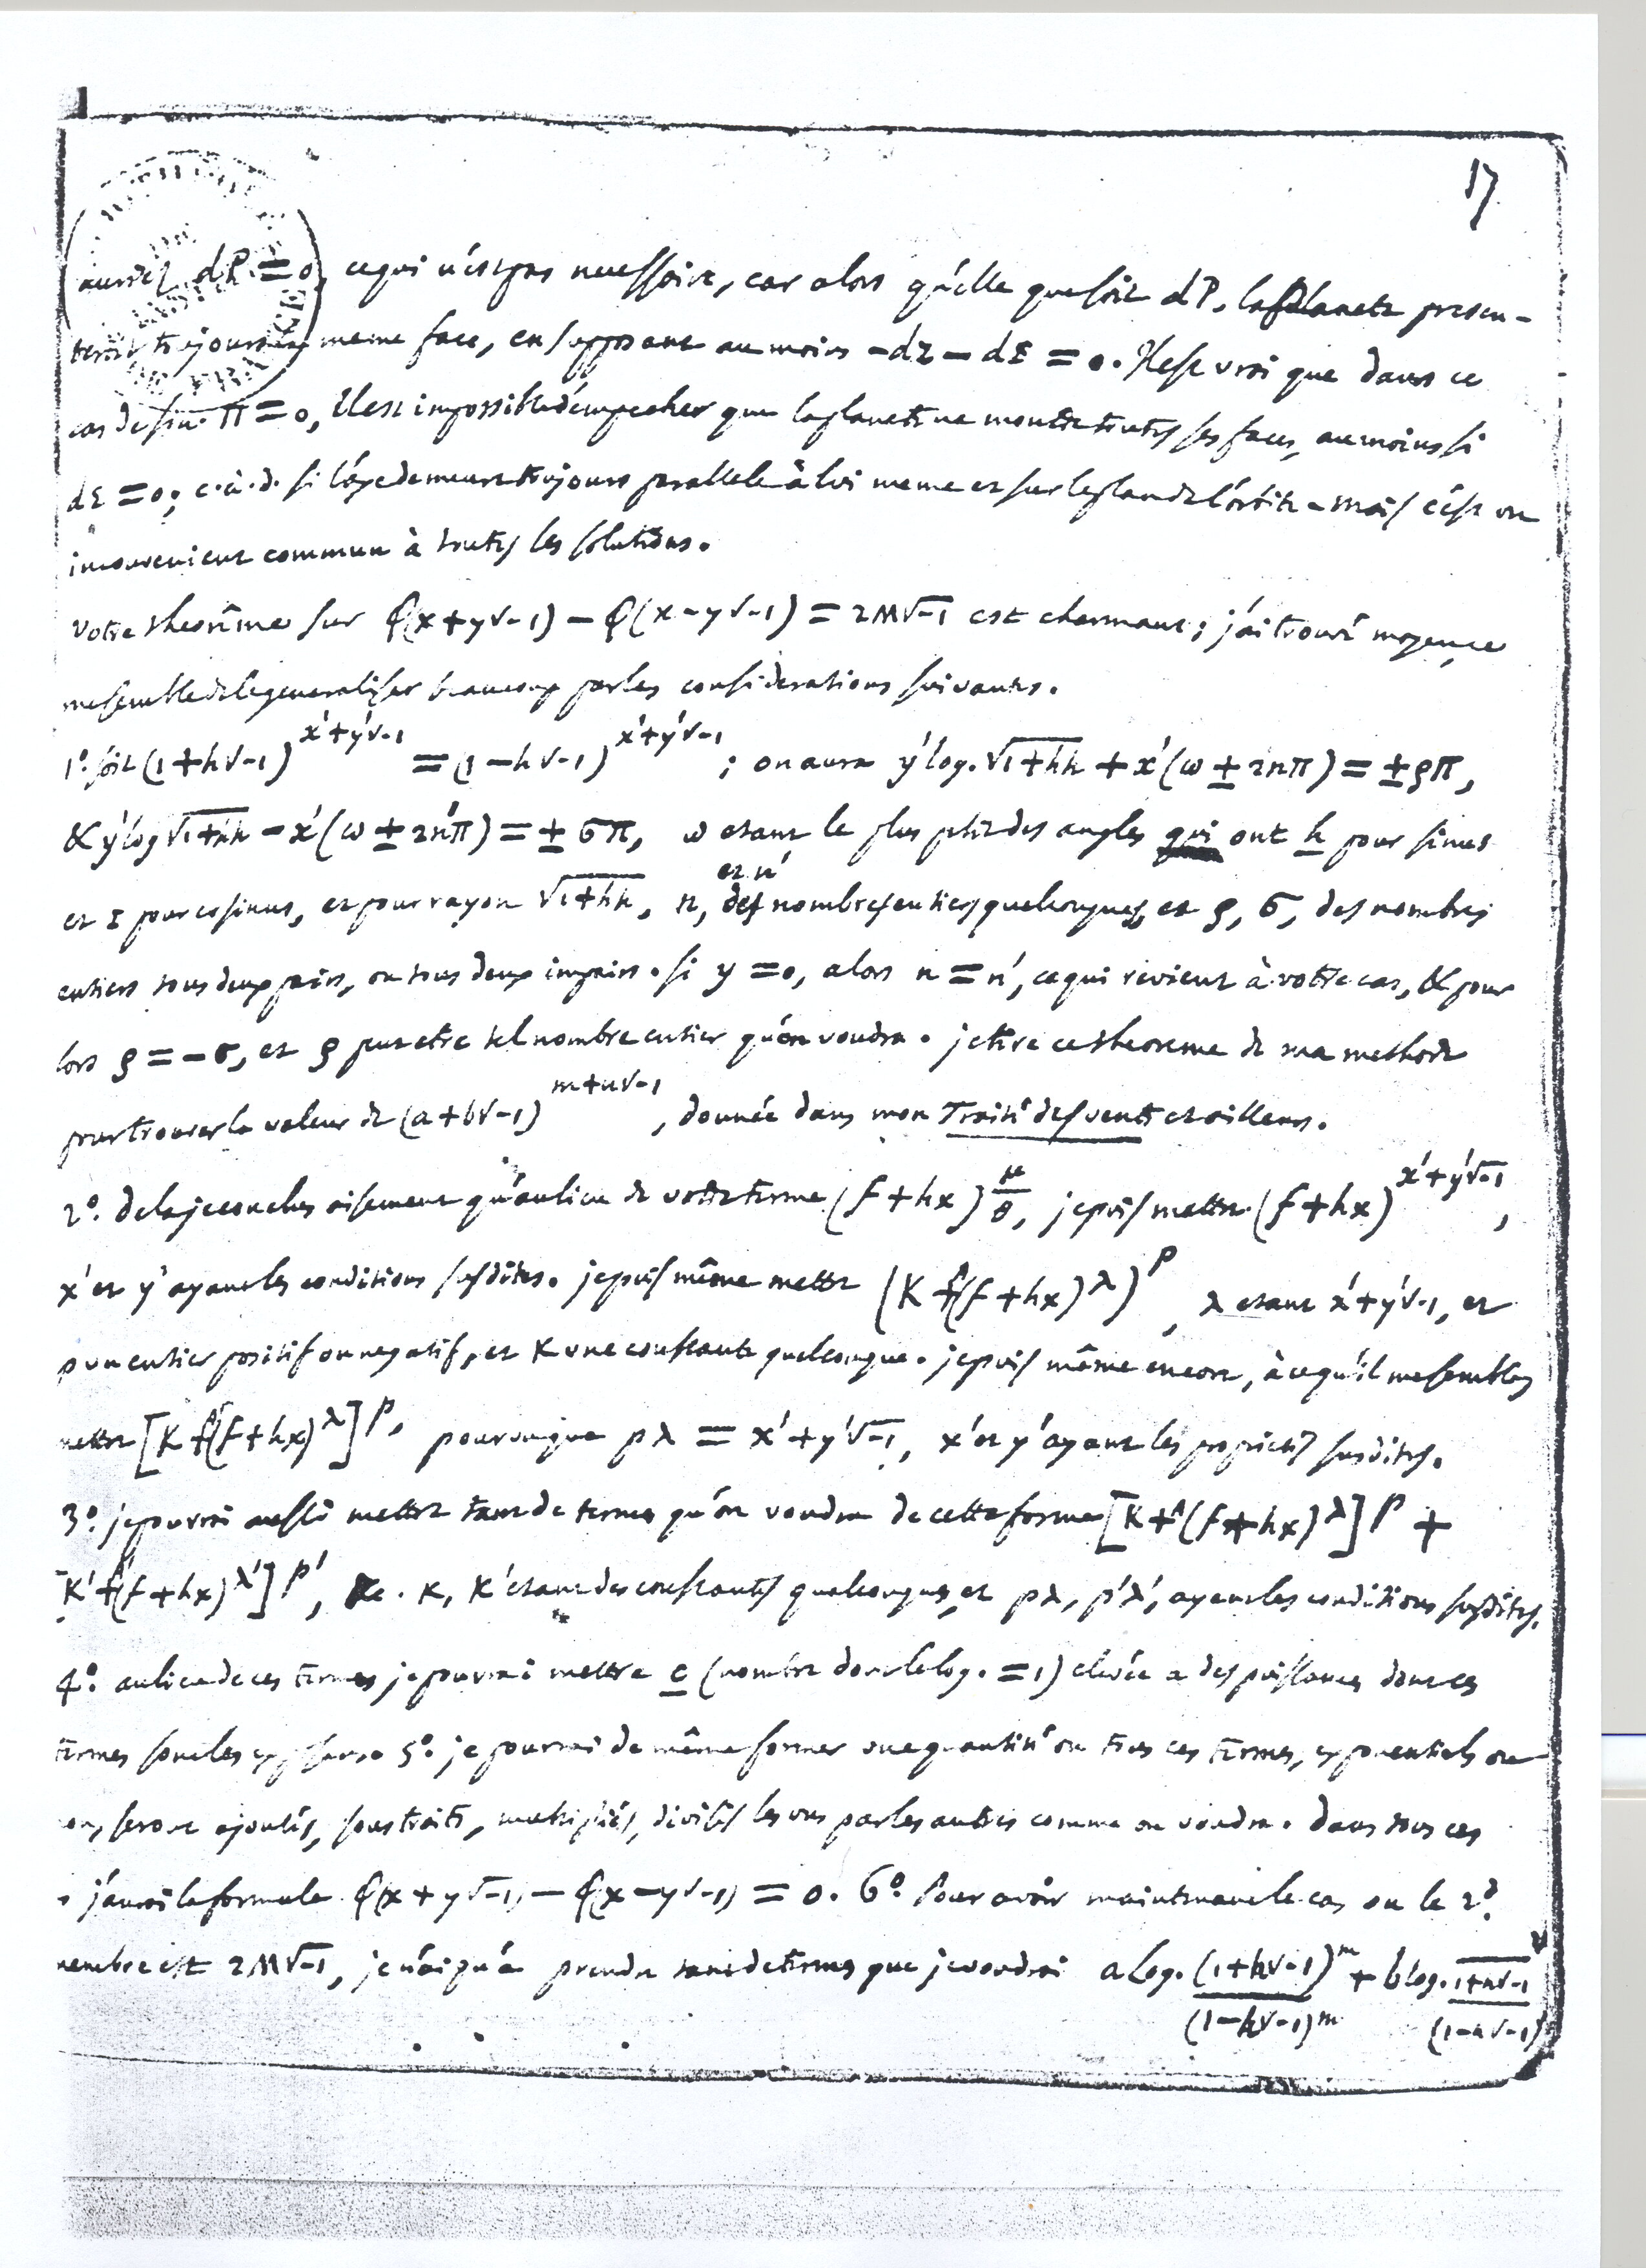 17
auroit dP = 0, cequi n'est pas necessaire, car alors qu'elle que soit dP, la planete presen-
teroit toujours la meme face, en supposant au moins -dZ - dƐ = 0. Il est vrai que dans ce
cas de sin. Π = 0, il est impossible d'empecher que la planete ne montre toutes ses faces, au moins si
dƐ = 0; c.à.d. si l'axe demeure toujours parallele à lui meme et sur le plan de l'orbite - mais c'est un
inconvenient commun à toutes les solutions.
Votre theorême sur φ(x+y√-1) - φ(x-y√-1) = 2M√-1 est charmant; j'ai trouvé moyen, ce
me semble de le generaliser beaucoup par les considerations suivantes.
1°. soit (1+h√-1)^{x'+y'√-1} = (1-h√-1)^{x'+y'√-1}; on aura y'log.√1+hh + x'(ω ± 2nπ) = ± ρπ,
& y'log √1+hh - x'(ω ± 2n'π) = ± σπ, ω etant le plus petit des angles qui ont h pour sinus
et n'
et 1 pour cosinus, et pour rayon √1+hh, n, des nombres entiers quelconques, et ρ, σ, des nombres
entiers tous deux pairs, ou tous deux impairs. si y = 0, alors n = n', ce qui revient à votre cas, & pour
lors ρ = -σ, et ρ peut etre tel nombre entier qu'on voudra. je tire ce theoreme de ma methode
pour trouver la valeur de (a+b√-1)^{m+n√-1}, donnée dans mon Traité des vents et ailleurs.
2°. de la je conclus aisement qu'au lieu de votre terme (f+hx)^{μ/θ}, je puis mettre (f+hx)^{x'+y'√-1},
x' et y' ayant les conditions susdites. je puis même mettre (K+(f+hx)^λ)^p, λ etant x'+y'√-1, et
p un entier positif ou negatif, et K une constante quelconque. je puis même encore, à ce qu'il me semble,
mettre [K+(f+hx)^λ]^p, pourvu que pλ = x'+y'√-1, x' et y' ayant les proprietés susdites.
3°. je pourrai aussi mettre tant de termes qu'on voudra de cette forme [K+(f+hx)^λ]^p +
[K'+(f+hx)^{λ'}]^{p'}, &c. K, K' etant des constantes quelconques, et pλ, p'λ', ayant les conditions susdites.
4°. au lieu de ces termes je pourrai mettre c (nombre dont le log. = 1) elevée a des puissances dont ces
termes sont les exposans. 5°. je pourrai de même former une quantité ou tous ces termes, exponentiels ou
non, seront ajoutés, soustraits, multipliés, divisés les uns par les autres comme on voudra. dans tous ces
j'aurai la formule φ(x+y√-1) - φ(x-y√-1) = 0. 6°. Pour avoir maintenant le cas ou le 2d.
membre est 2M√-1, je n'ai qu'à prendre tant de termes que je voudrai a log. (1+h√-1)^m/(1-h√-1)^m + b log. 1+h√-1/(1-h√-1)